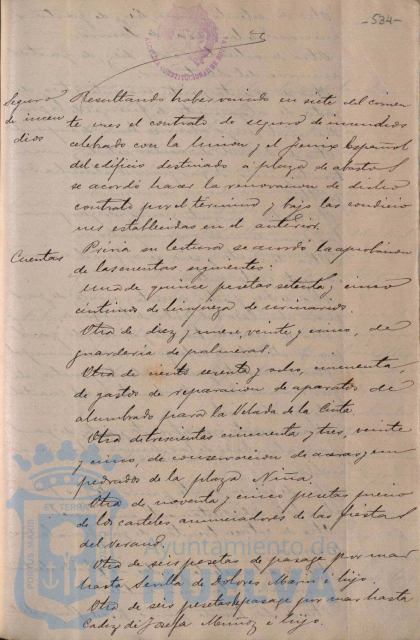 -534-
Seguro de incendios
Resultando haber vencido en siete del corrien
te mes el contrato de seguro de incendios
celebrado con la Union y el Fenix Español
del edificio destinado á plaza de abastos
se acordó hacer la renovacion de dicho
contrato por el término y bajo las condicio
nes establecidas en el anterior.
Cuentas
Prévia su lectura se acordó la aprobacion
de las cuentas siguientes:
Una de quince pesetas setenta y cinco
céntimos de limpieza de urinarios.
Otra de diez y nueve, veinte y cinco, de
guarderia de palmeras.
Otra de ciento setenta y ocho, cincuenta,
de gastos de reparacion de aparatos de
alumbrado para la Velada de la Cinta.
Otra de trescientas cincuenta y tres, veinte
y cinco, de conservacion de aceras y em
pedrados de la plaza Niña.
Otra de noventa y cinco pesetas precio
de los carteles anunciadores de las fiestas
del Verano.
Otra de seis pesetas de pasage por mar
hasta Sevilla de Dolores Marin é hijo.
Otra de seis pesetas de pasage por mar hasta
Cadiz de Josefa Muñoz é hijo.
Ayuntamiento de